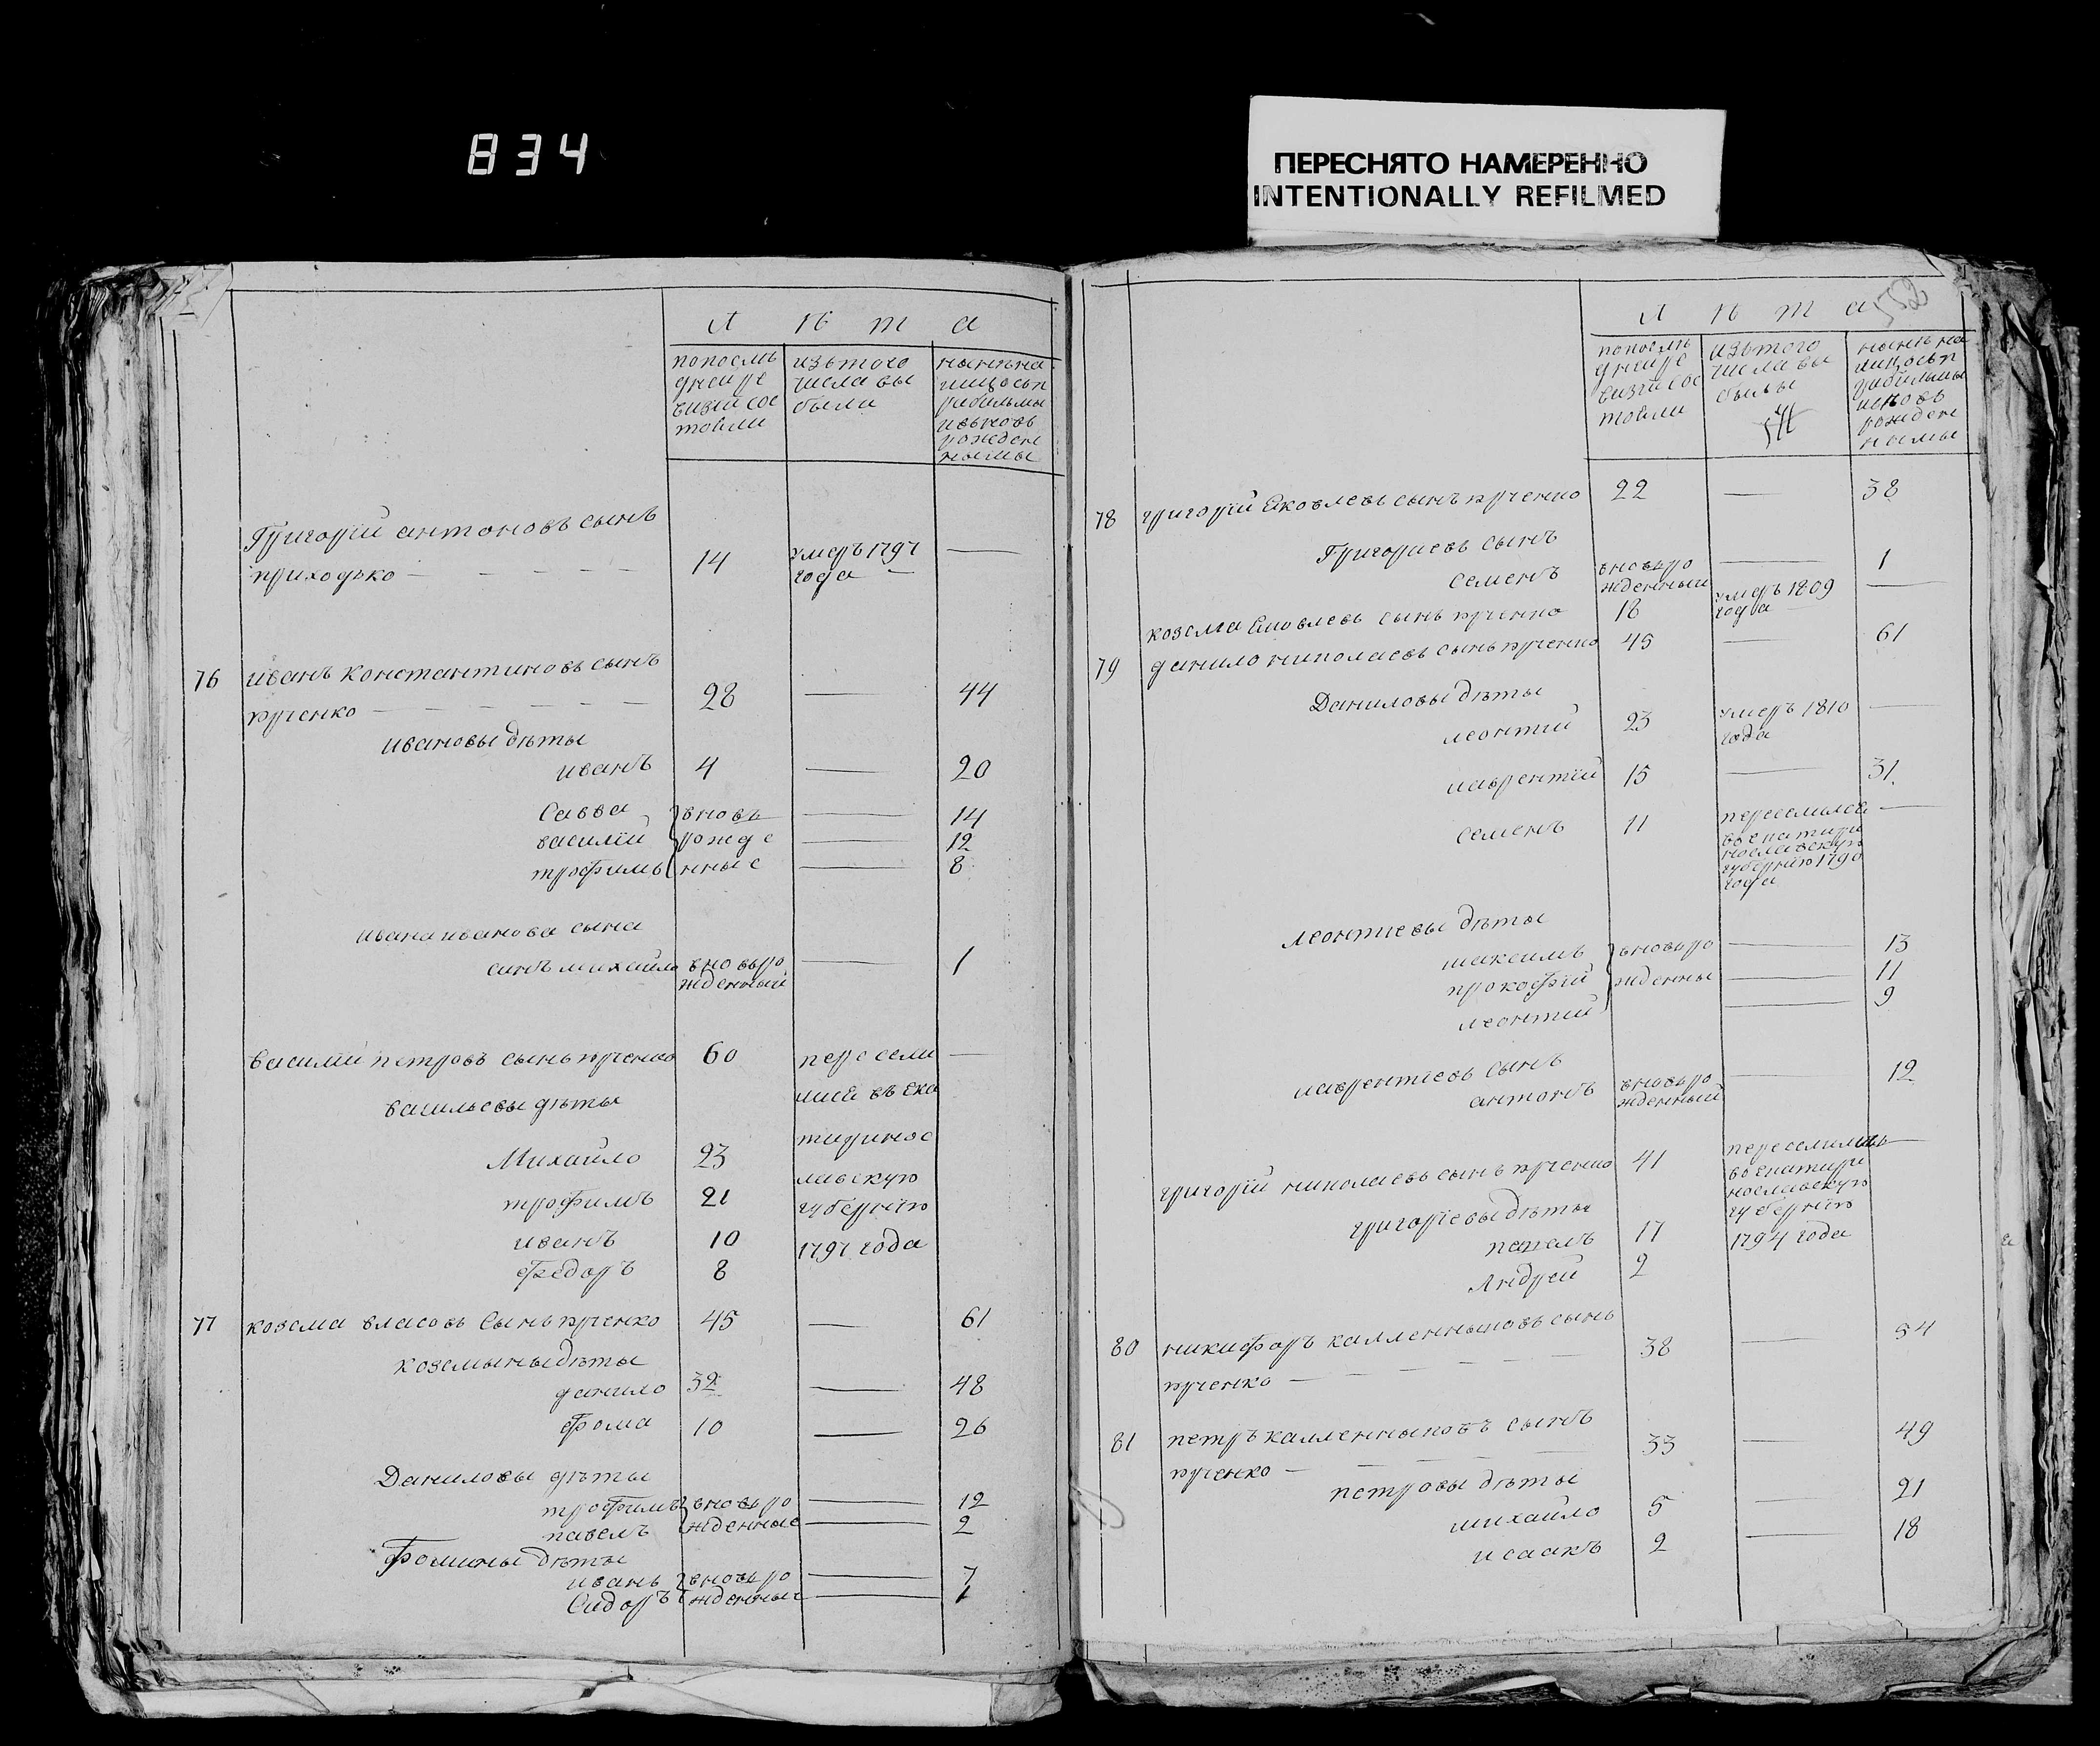 834
ПЕРЕСНЯТО НАМЕРЕННО
INTENTIONALLY REFILMED
Л ѣ т а
попослѣ
днеи ре
визіи сос
тояли
изътого
числа вы
были
нынѣ на
лицосъп
рибылыми
ивновь
рожден
ными
Григорїй антоновъ сынъ
приходько — 14 умеръ 1797 —
года
76 иванъ константиновъ сынъ
рученко — 28 — 44
ивановы дѣты
иванъ 4 — 20
Савва вновь — 14
василїй рожде — 12
трофимъ нные — 8
ивана иванова сына
синъ михаило вновьро — 1
жденный
василїй петровъ сынъ рученко 60 пересели —
васильевы дѣты лисѣ въ ека
Михайло 23 тиринос
трофимъ 21 лавскую
иванъ 10 губернїю
Федоръ 8 1797 года
77 козема власовъ Сынъ рученко 45 — 61
коземыны дѣты
данило 32 — 48
Фома 10 — 26
Даниловы дѣты
трофимъ вновьро — 12
павелъ жденные — 2
Фомины дѣты
иванъ вновьро — 7
Сидоръ жденные — 1
552
Л ѣ т а
попослѣ
днеи ре
визіи сос
тояли
изьтого
числа вы
были
нынѣ на
лицосъп
рибылыми
ивновь
рожден
ными
78 григорїй Яковлевъ сынъ рученко 22 — 38
Григориевъ сынъ
семенъ вновьро — 1
жденный
козема Яковлевъ сынъ рученко 18 умеръ 1809 —
года
79 данило николаевъ сынъ рученко 45 — 61
Даниловы дѣты
леонтїй 23 умеръ 1810 —
года
лаврентїй 15 — 31
семенъ 11 переселился —
вѣекатири
нославскую
губернїю 1790
года
леонтиевы дѣты
максимъ вновьро — 13
прокофїй жденны — 11
леонтїй — 9
лаврентїевъ сынъ
антонъ вновьро — 12
жденный
григорїй николаевъ сынъ рученко 41 переселились —
вѣекатири
нославскую
григорїевы дѣты губернїю
павелъ 17 1794 года
Андрей 2
80 никифоръ каленныковъ сынъ
рученко — 38 — 54
81 петръ каленныковъ сынъ
рученко — 33 — 49
петровы дѣты
михайло 5 — 21
исаакъ 2 — 18